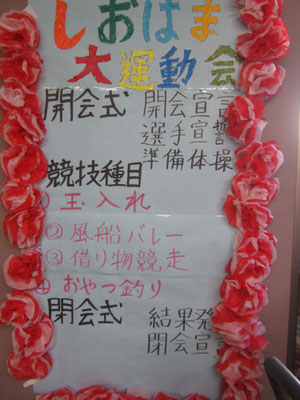 しおはま
大運動会
開会式 開会宣言
選手宣誓
準備体操
競技種目
① 玉入れ
② 風船バレー
③ 借り物競走
④ おやつ釣り
閉会式 結果発
閉会宣言